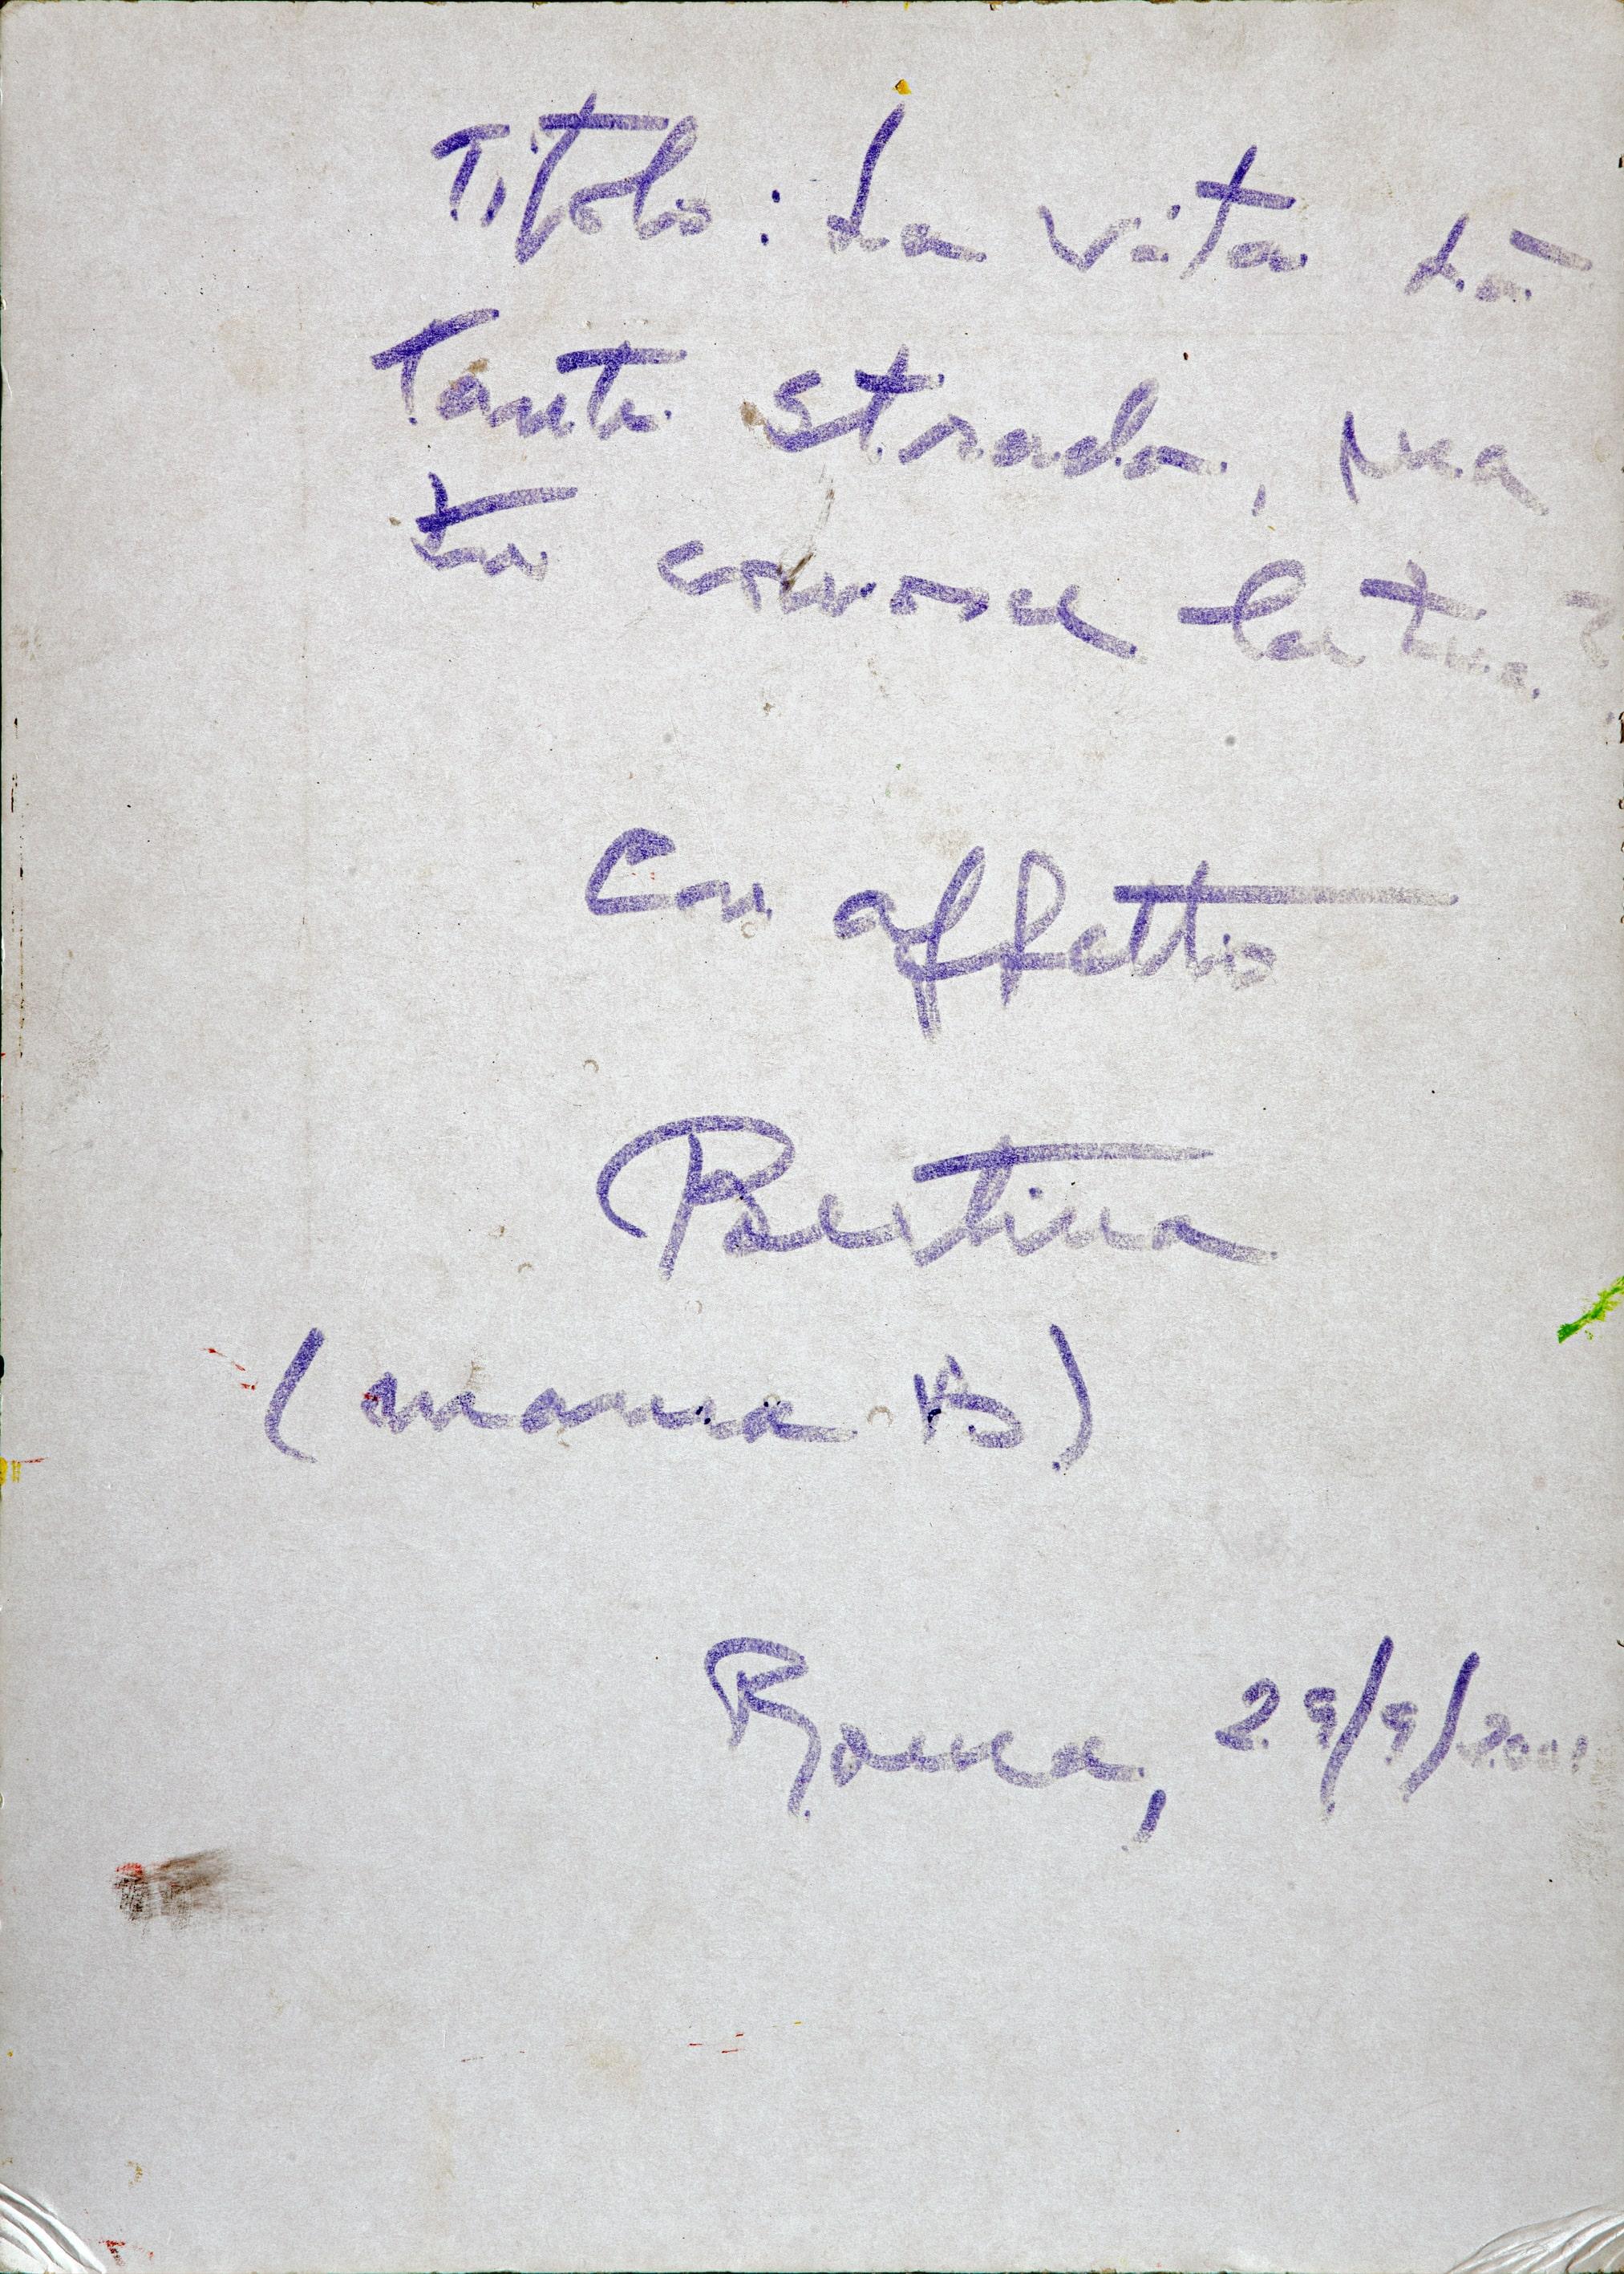 Titolo: La vita dà
tante strade, ma
tu conosci la tua?
Con affetto
(mamma
Roma, 29/9/2001